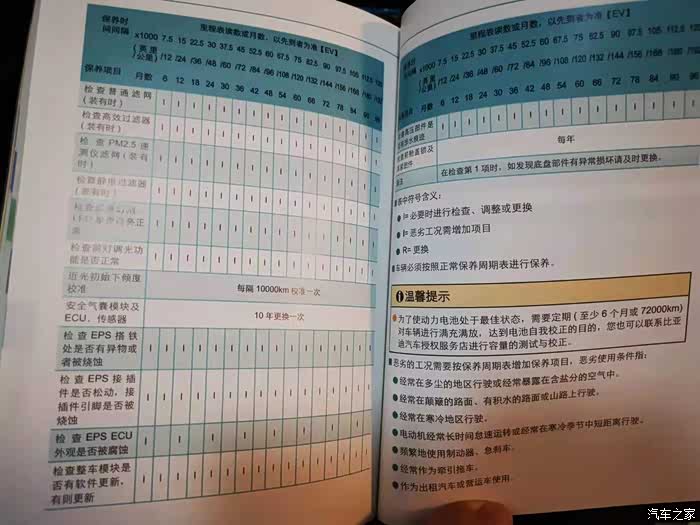 保养时间间隔 里程表读数或月数，以先到者为准【EV】
x1000 7.5 15 22.5 30 37.5 45 52.5 60 67.5 75 82.5 90 97.5 105 112.5
(英里/公里) /12 /24 /36 /48 /60 /72 /84 /96 /108 /120 /132 /144 /156 /168
保养项目 月数 6 12 18 24 30 36 42 48 54 60 66 72 78 84 90
检查普通滤网
(装有时)
检查高效过滤器
(装有时)
检查PM2.5速
测仪滤网(装有
时)
检查静电过滤器
(装有时)
常
检查前灯调光功
能是否正常
近光初始下倾度
校准
每隔 10000km 校准一次
安全气囊模块及
ECU、传感器
10年更换一次
检查EPS搭铁
处是否有异物或
者被烧蚀
检查EPS接插
件是否松动，接
插件引脚是否被
烧蚀
检查EPS ECU
外观是否被腐蚀
检查整车模块是
否有软件更新，
有则更新
里程表读数或月数，以先到者为准【EV】
x1000 7.5 15 22.5 30 37.5 45 52.5 60 67.5 75 82.5 90 97.5 105 112.5
(英里/公里) /12 /24 /36 /48 /60 /72 /84 /96 /108 /120 /132 /144 /156 /168
月数 6 12 18 24 30 36 42 48 54 60 66 72 78 84 90
每年
在检查第1项时，如发现底盘部件有异常损坏请及时更换。
表中符号含义：
I= 必要时进行检查、调整或更换
I= 恶劣工况需增加项目
R= 更换
车辆必须按照正常保养周期表进行保养。
温馨提示
为了使动力电池处于最佳状态，需要定期(至少6个月或72000km)
对车辆进行满充满放，达到电池自我校正的目的，您也可以联系比亚
迪汽车授权服务店进行容量的测试与校正。
恶劣的工况需要按保养周期表增加保养项目，恶劣使用条件指：
经常在多尘的地区行驶或经常暴露在含盐分的空气中。
经常在颠簸的路面、有积水的路面或山路上行驶。
经常在寒冷地区行驶。
电动机经常长时间怠速运转或经常在寒冷季节中短距离行驶。
频繁地使用制动器、急刹车。
经常作为牵引拖车。
作为出租汽车或营运车使用。
汽车之家